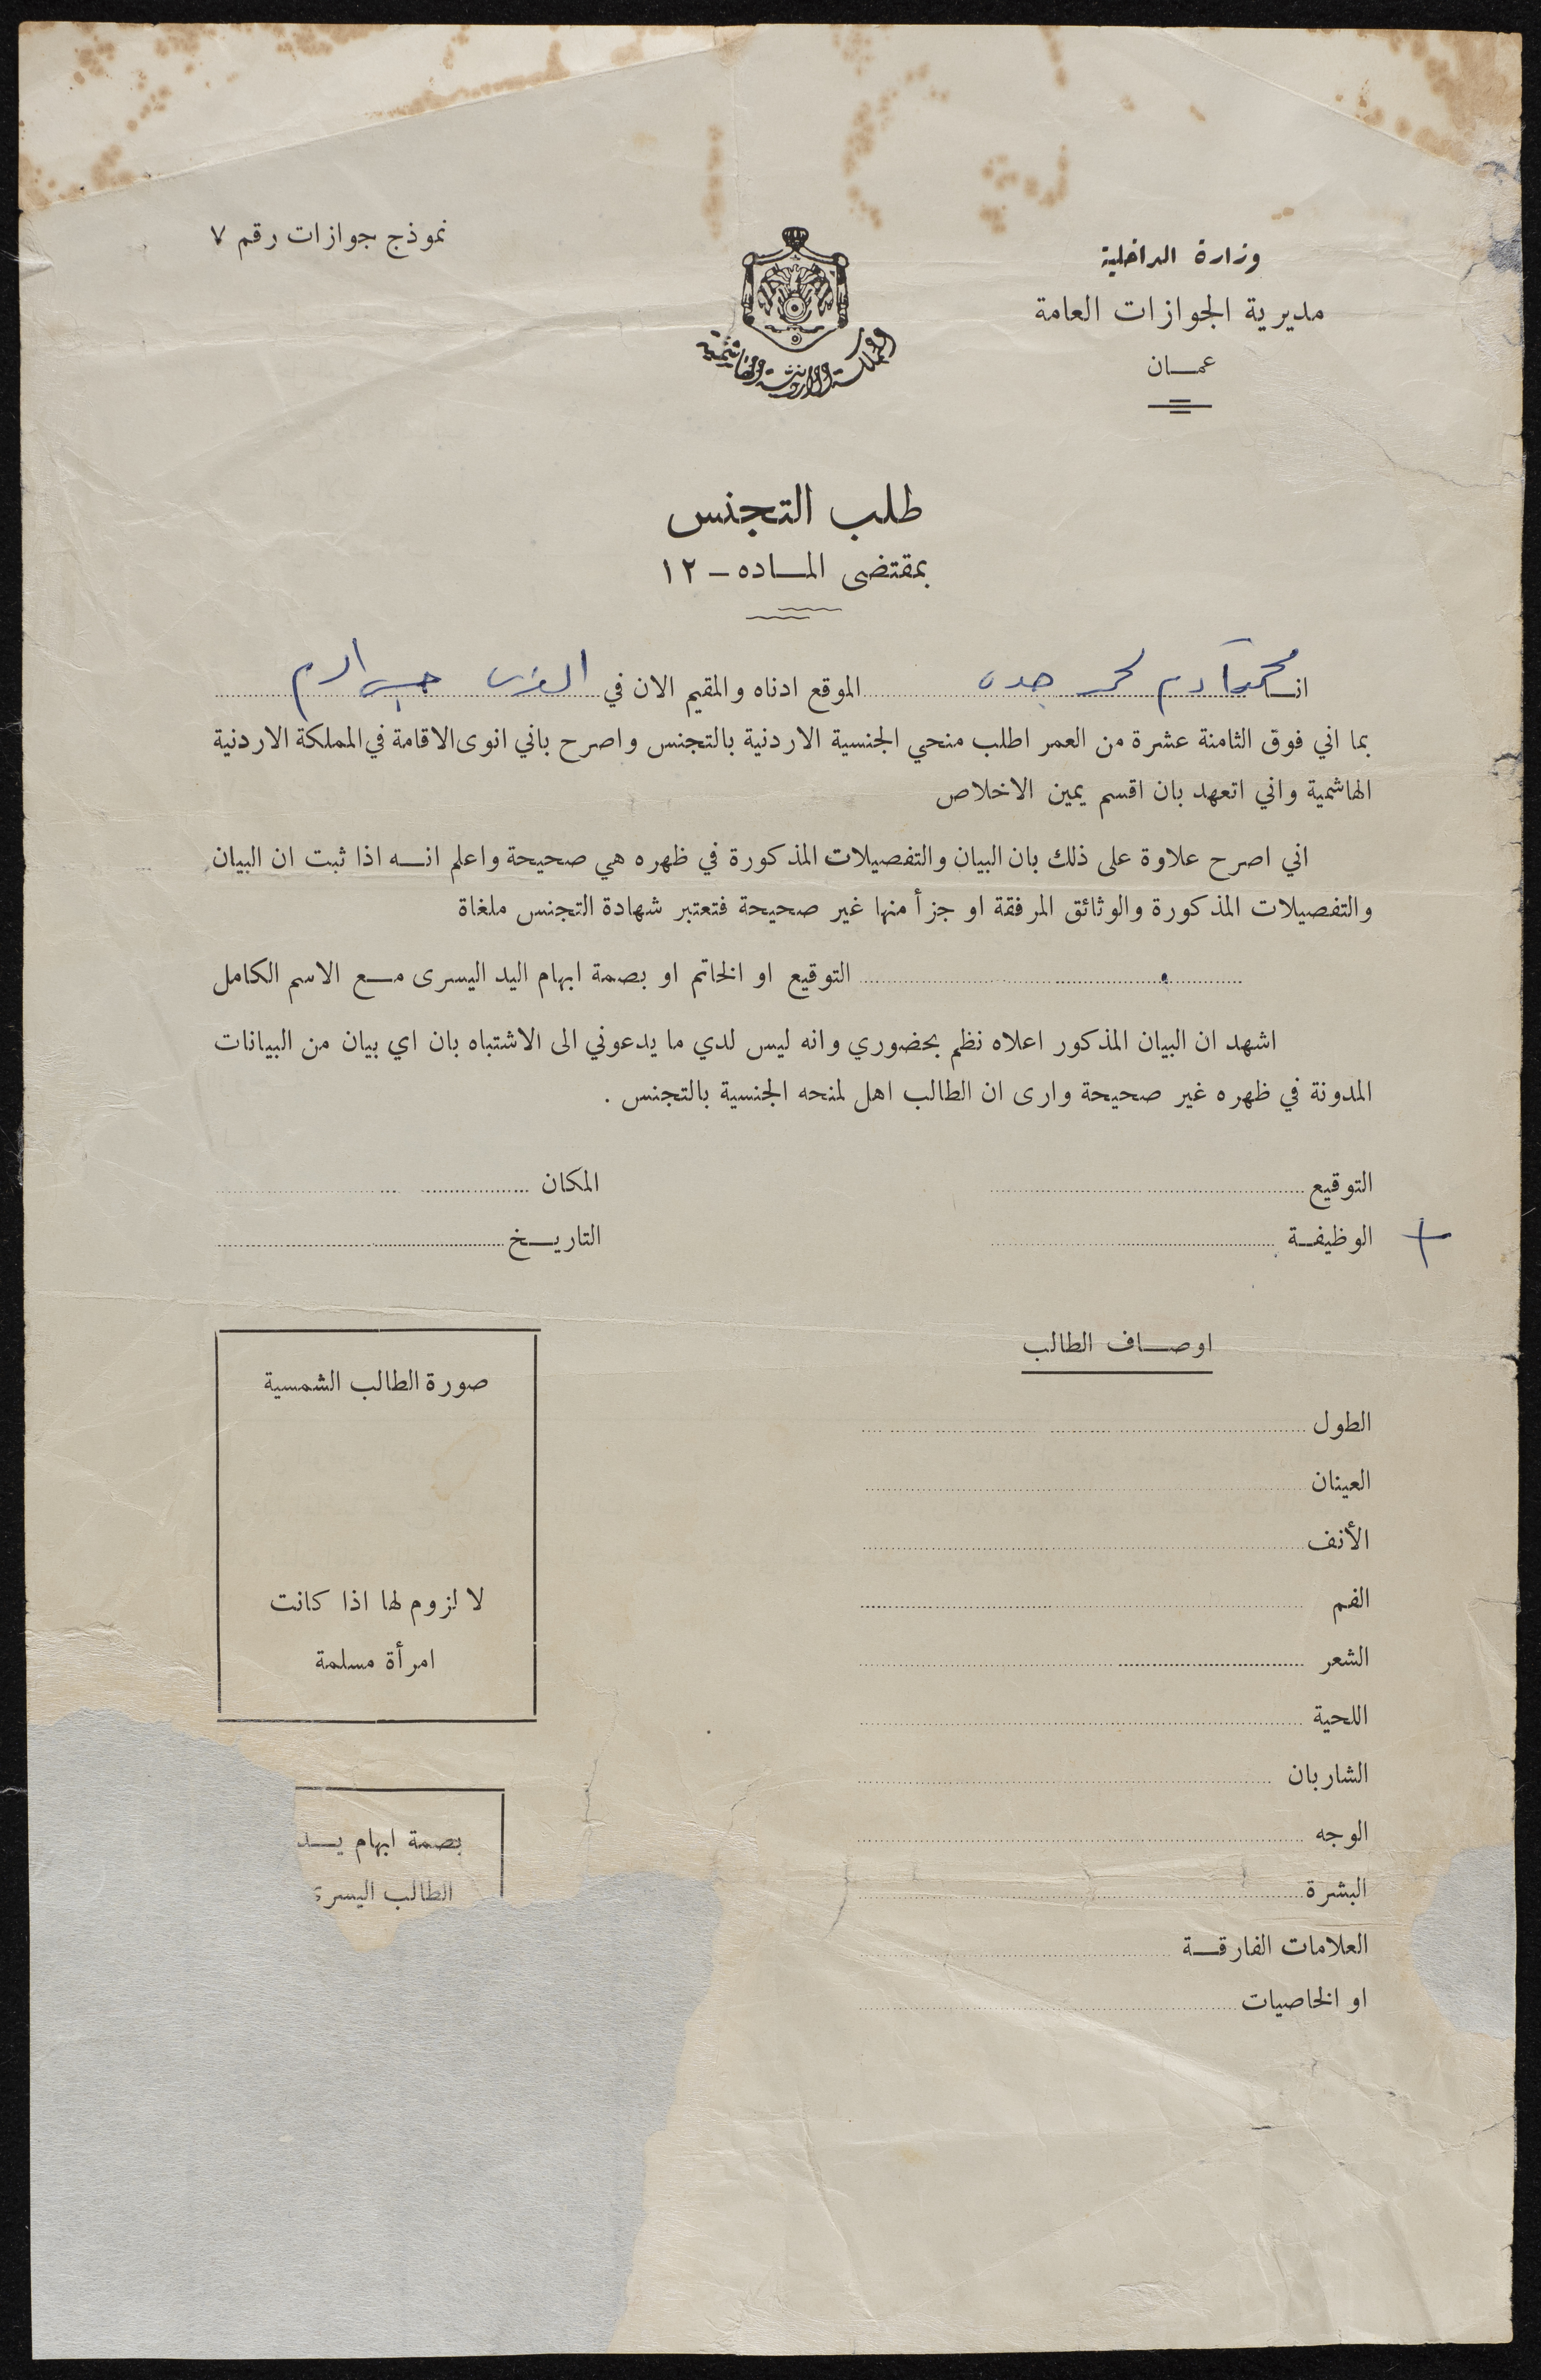 نموذج جوازات رقم ٧
وزارة الداخلية
مديرية الجوازات العامة
عمـــان
المملكة الاردنية الهاشمية
طلب التجنس
بمقتضى المـــاده ـ ١٢
انـــا محمد آدم محمد جده الموقع ادناه والمقيم الان في القدس حبس الدم
بما اني فوق الثامنة عشرة من العمر اطلب منحي الجنسية الاردنية بالتجنس واصرح باني انوى الاقامة في المملكة الاردنية
الهاشمية واني اتعهد بان اقسم يمين الاخلاص
اني اصرح علاوة على ذلك بان البيان والتفصيلات المذكورة في ظهره هي صحيحة واعلم انـــه اذا ثبت ان البيان
والتفصيلات المذكورة والوثائق المرفقة او جزأ منها غير صحيحة فتعتبر شهادة التجنس ملغاة
التوقيع او الخاتم او بصمة ابهام اليد اليسرى مـــع الاسم الكامل
اشهد ان البيان المذكور اعلاه نظم بحضوري وانه ليس لدي ما يدعوني الى الاشتباه بان اي بيان من البيانات
المدونة في ظهره غير صحيحة وارى ان الطالب اهل لمنحه الجنسية بالتجنس .
التوقيع المكان
الوظيفـــة التاريـــخ
اوصـــاف الطالب
الطول
العينان
الأنف
الفم
الشعر
اللحية
الشاربان
الوجه
البشرة
العلامات الفارقـــة
او الخاصيات
صورة الطالب الشمسية
لا لزوم لها اذا كانت
امرأة مسلمة
بصمة ابهام يـــد
الطالب اليسرى